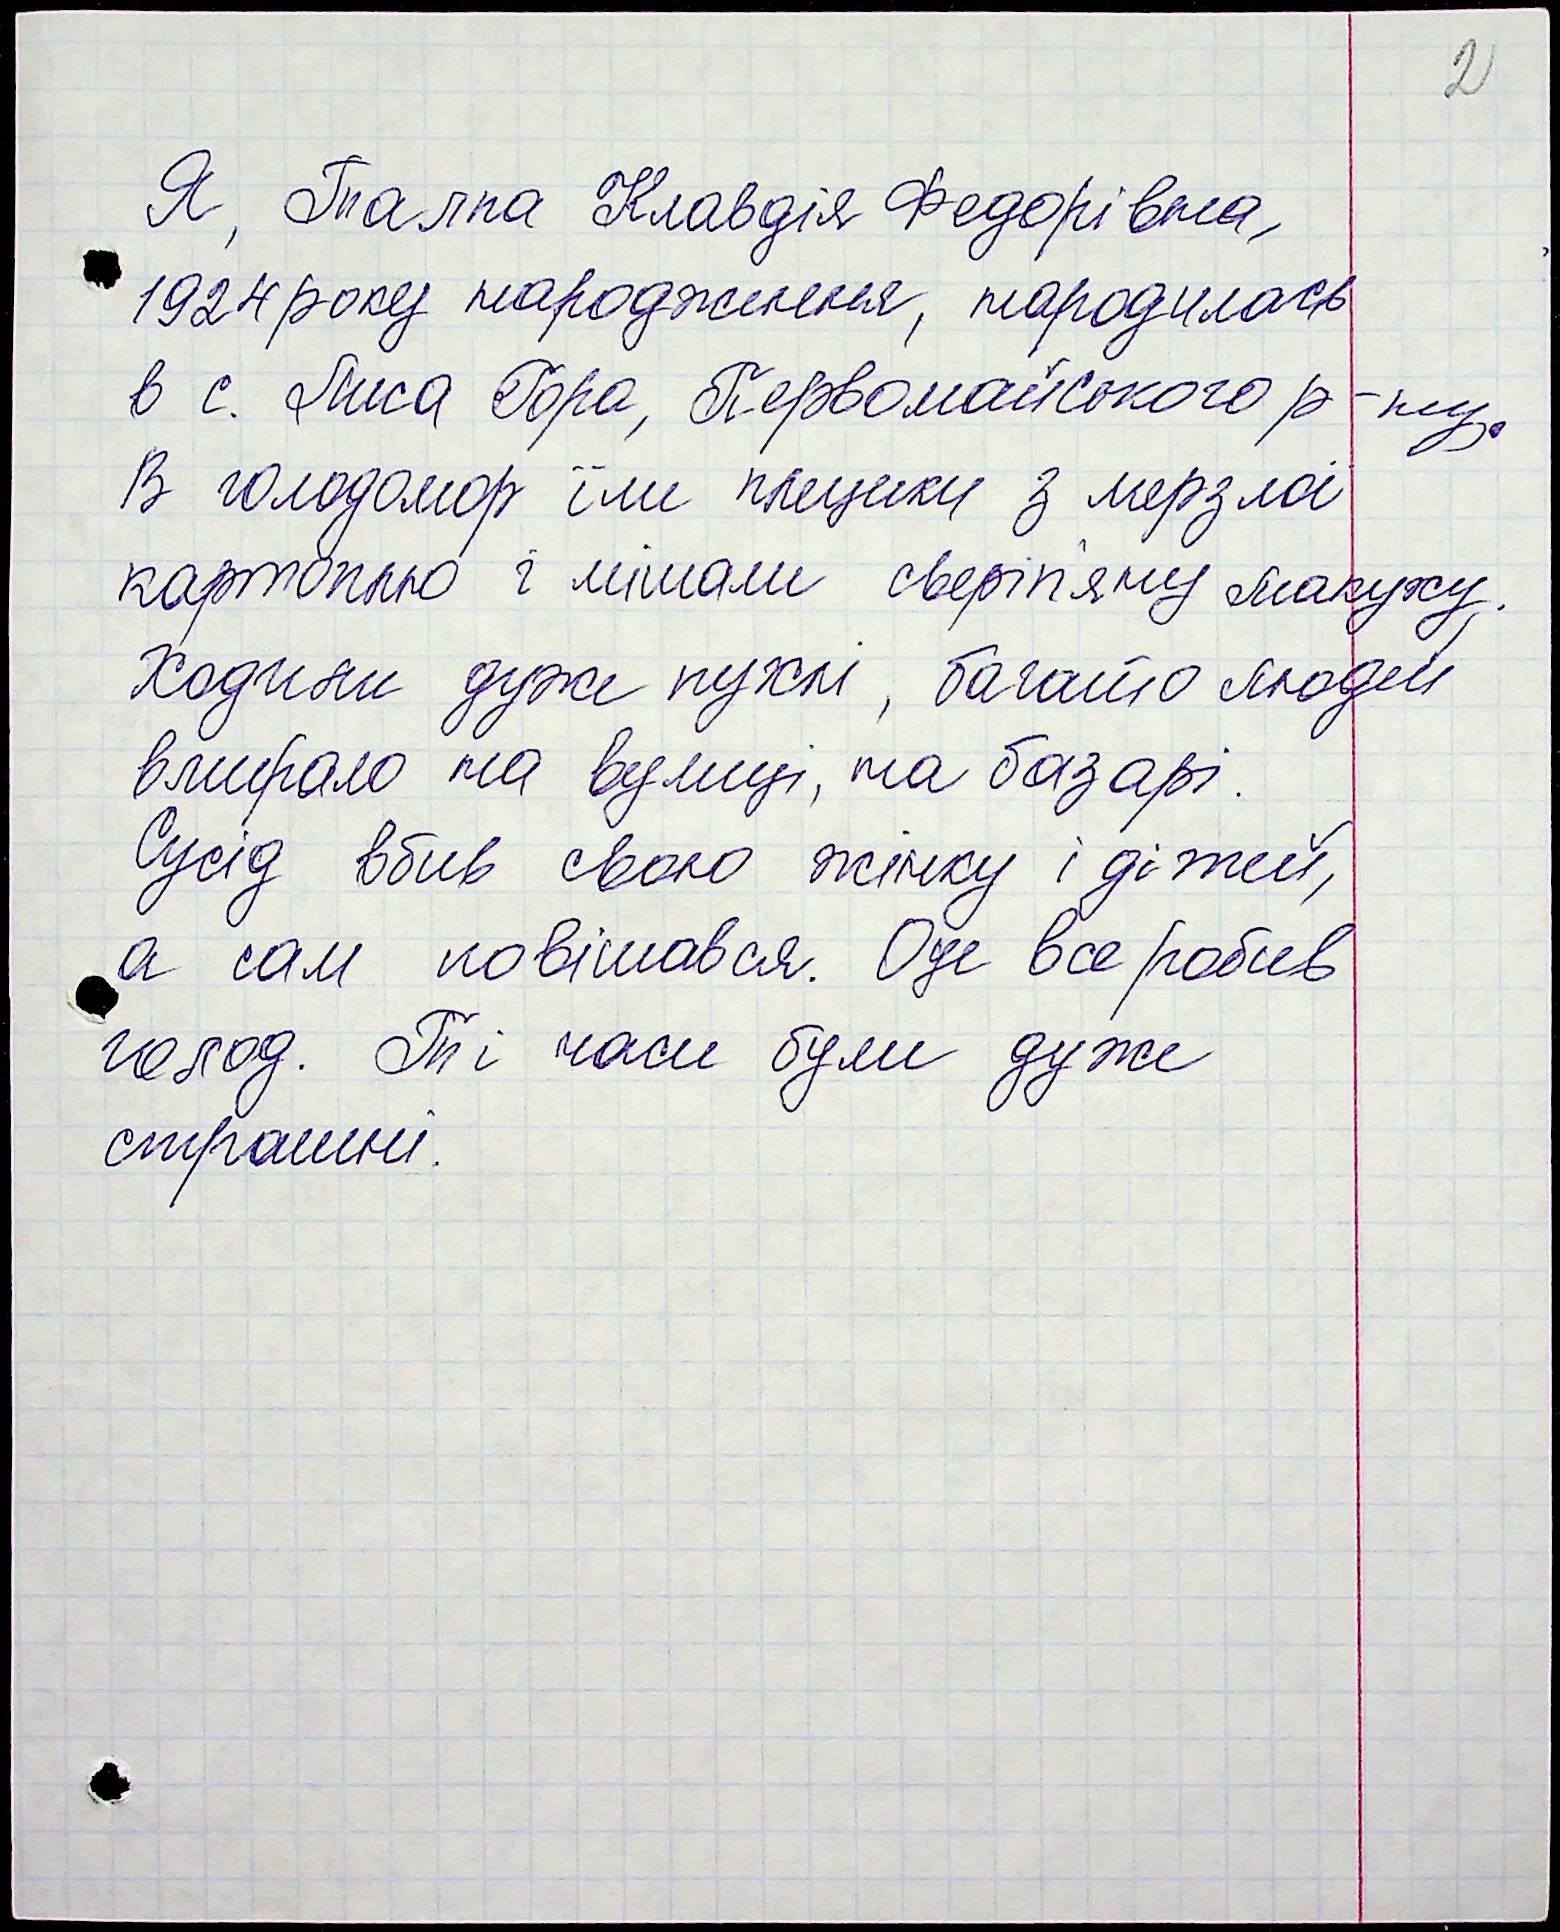 2
Я, Таляпа Клавдія Федорівна,
1924 року народження, народилась
в с. Лиса Гора, Первомайського р-ну.
В голодомор їли плецики з мерзлої
картоплю і мішали сверіп'яну макуху.
Ходили дуже пухлі, багато людей
вмирало на вулиці, на базарі.
Сусід вбив свою жінку і дітей,
а сам повішався. Оце все робив
голод. Ті часи були дуже
страшні.